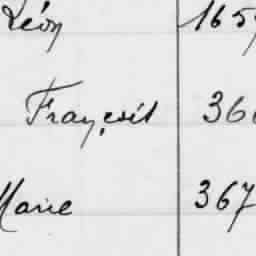 Léon 165
François 36
Marie 367